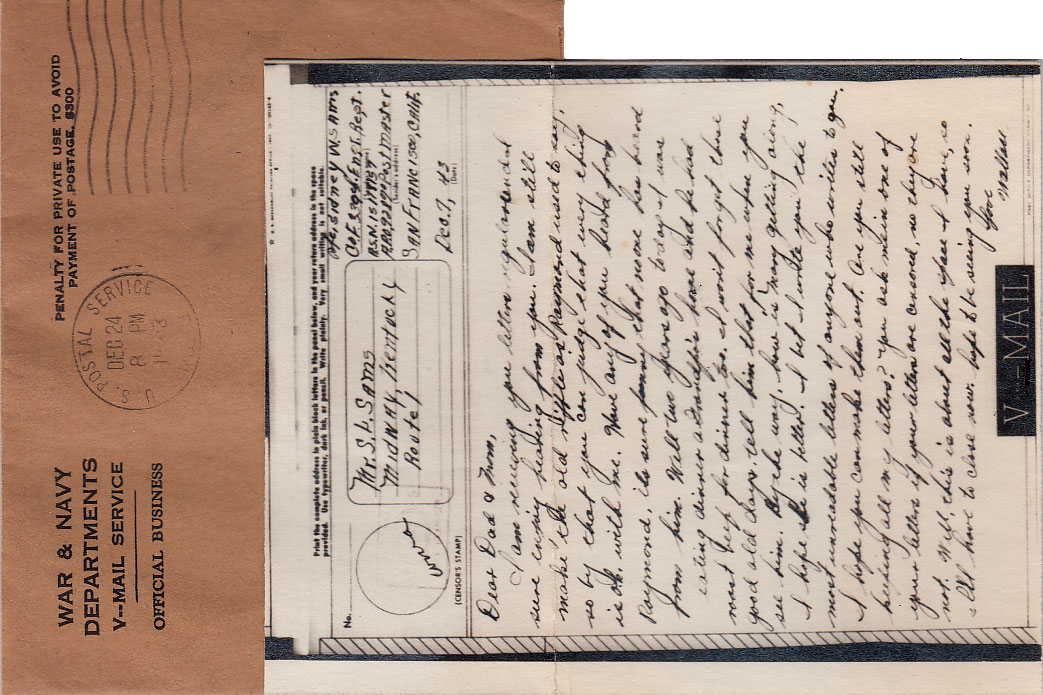 PENALTY FOR PRIVATE USE TO AVOID
PAYMENT OF POSTAGE, $300
U. S. POSTAL SERVICE
DEC 24
8 PM
WAR & NAVY
DEPARTMENTS
V--MAIL SERVICE
OFFICIAL BUSINESS
Print the complete address in plain block letters in the panel below, and your return address in the space
provided. Use typewriter, dark ink, or pencil. Write plainly. Very small writing is not suitable.
No.
(CENSOR'S STAMP)
Mr. S. H. Sams
Midway, Kentucky
Route 1
Pfc Sidney W. Sams
Co. F
A.S.N.
A.P.O. Postmaster
(Sender's address)
San Francisco, Calif.
Dec. 7, 43
(Date)
Dear Dad & Mom,
I am receiving you letters regular and
sure enjoy hearing from you. I am still
make the old riffle as Raymond used to say,
so by that you can judge that every thing
is ok. with me. Have any of you heard from
Raymond, its sure funny that none has heard
from him. Well two years ago today I was
eating dinner at home and he had
roast beef for dinner too, I won't forget those
good old days. tell him that for me when you
see him. By the way, how is many getting along,
I hope he is better. I bet I write you'll the
most unreadable letters of anyone who writes to you.
I hope you can make them out. Are you still
keeping all my letters? You ask me in one of
your letters if your letters are censored, no they are
not. Well this is about all the space I have, so
I'll have to close now. hope to be seeing you soon.
Love
Wallace
V--MAIL